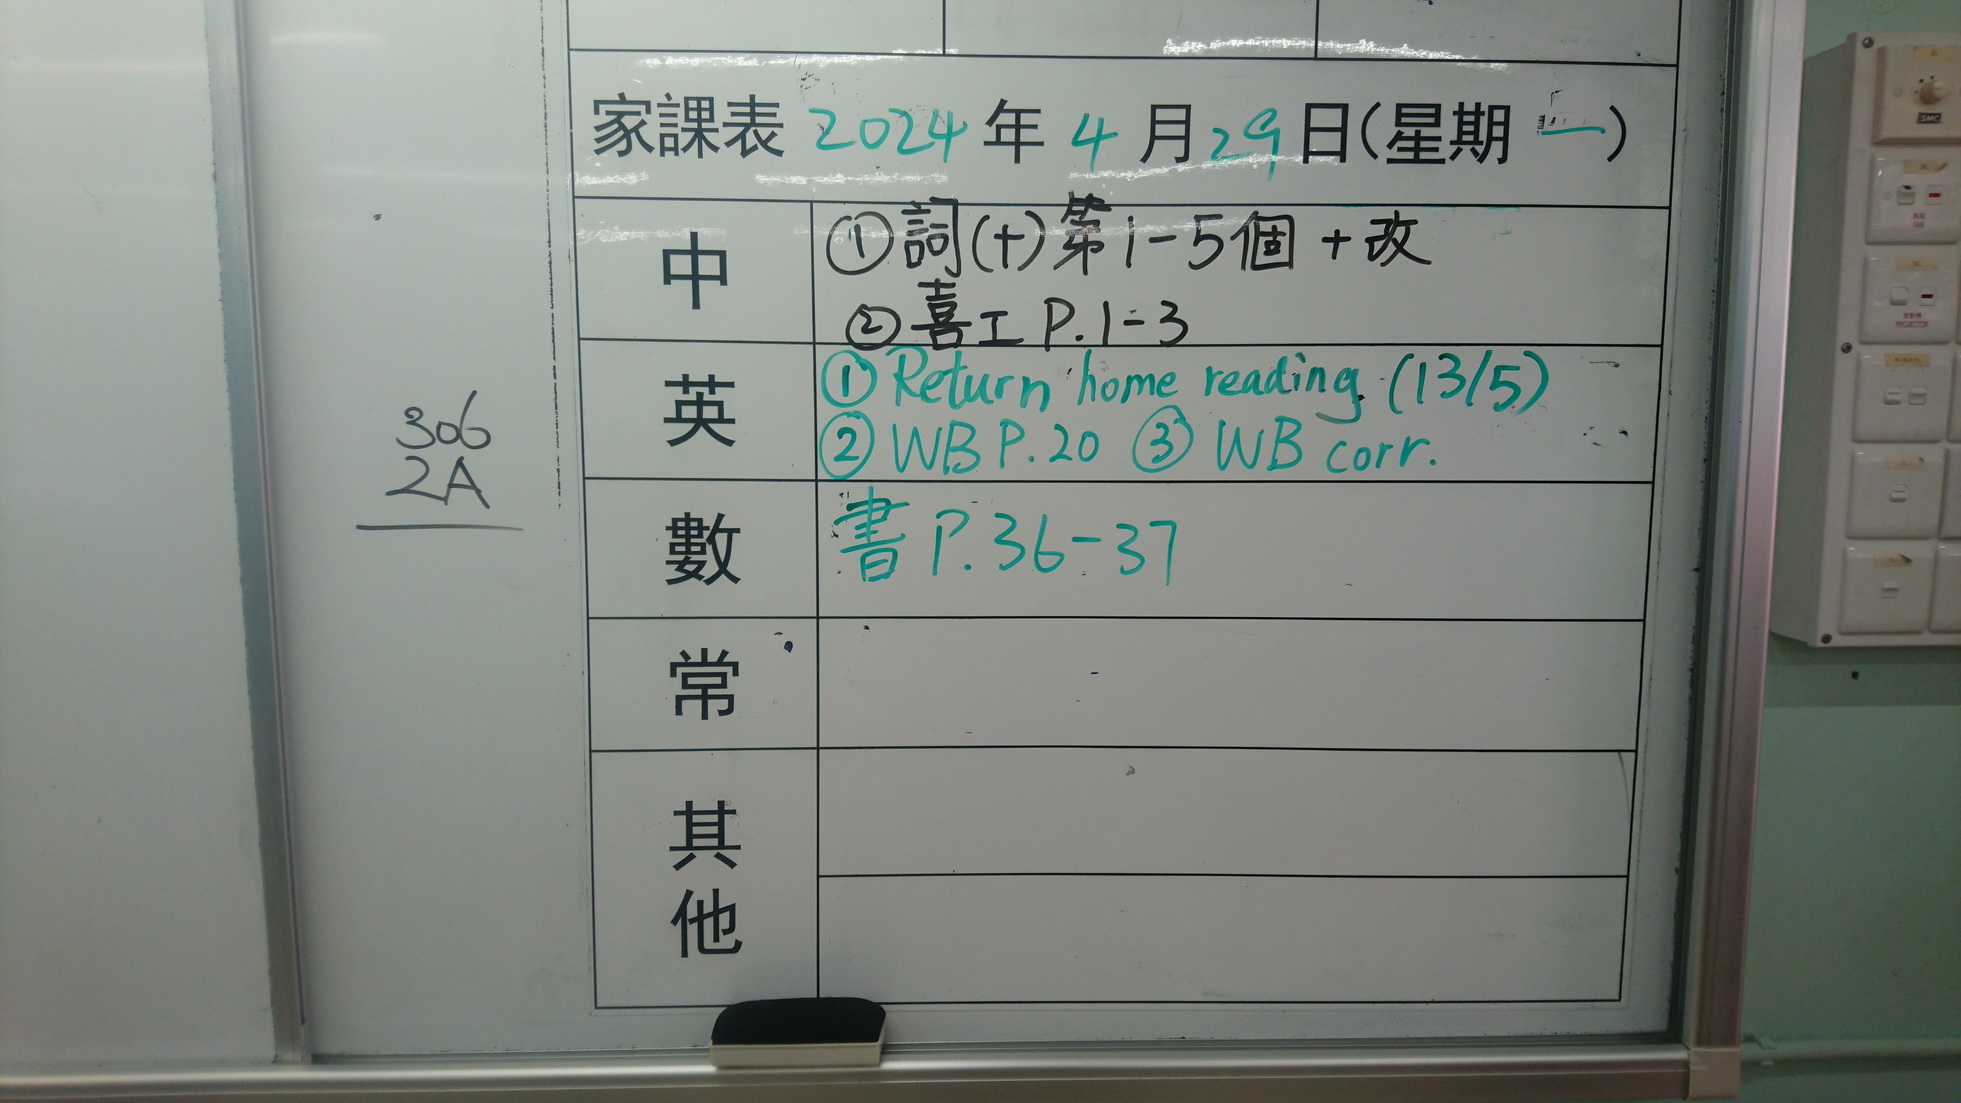 家課表 2024年4月29日(星期一)
中
①詞(十)第1-5個+改
②喜工 P.1-3
英
①Return home reading (13/5)
②WB P.20 ③WB corr.
數
書 P.36-37
常
其他
306
2A
SMC
PROJECTOR